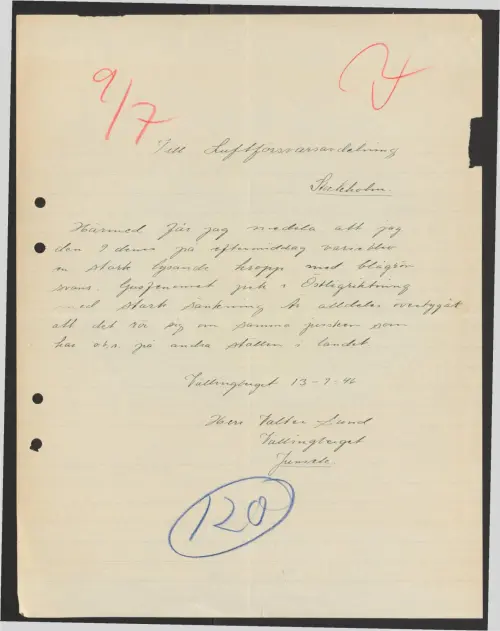 9/7
Till Luftförsvarsavdelning
Stockholm.
Härmed får jag medela att jag
den 9 denes på eftermiddag varseblev
en stark lysande kropp med blågrön
svans. gick i Östlig riktning
med stark sänkning är alldeles overtygat
att det rör sig om samma som
har obs. på andra ställen i landet
Vallingberget 13-7-46
Herr Valter Sund
Vallingberget
120